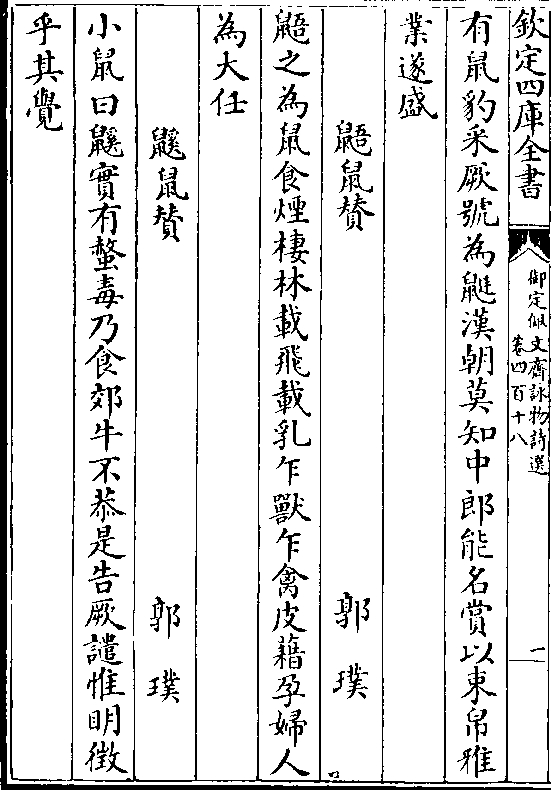 欽定四庫全書
御定佩文齋詠物詩選
卷四百十八
一
有鼠豹采厥號為鼮漢朝莫知中郎能名賞以束帛雅
業遂盛
鼯鼠贊 郭璞
鼯之為鼠食煙棲林載飛載乳乍獸乍禽皮藉孕婦人
為大任
鼷鼠贊 郭璞
小鼠曰鼷實有螫毒乃食郊牛不恭是告厥譴惟明徵
乎其覺